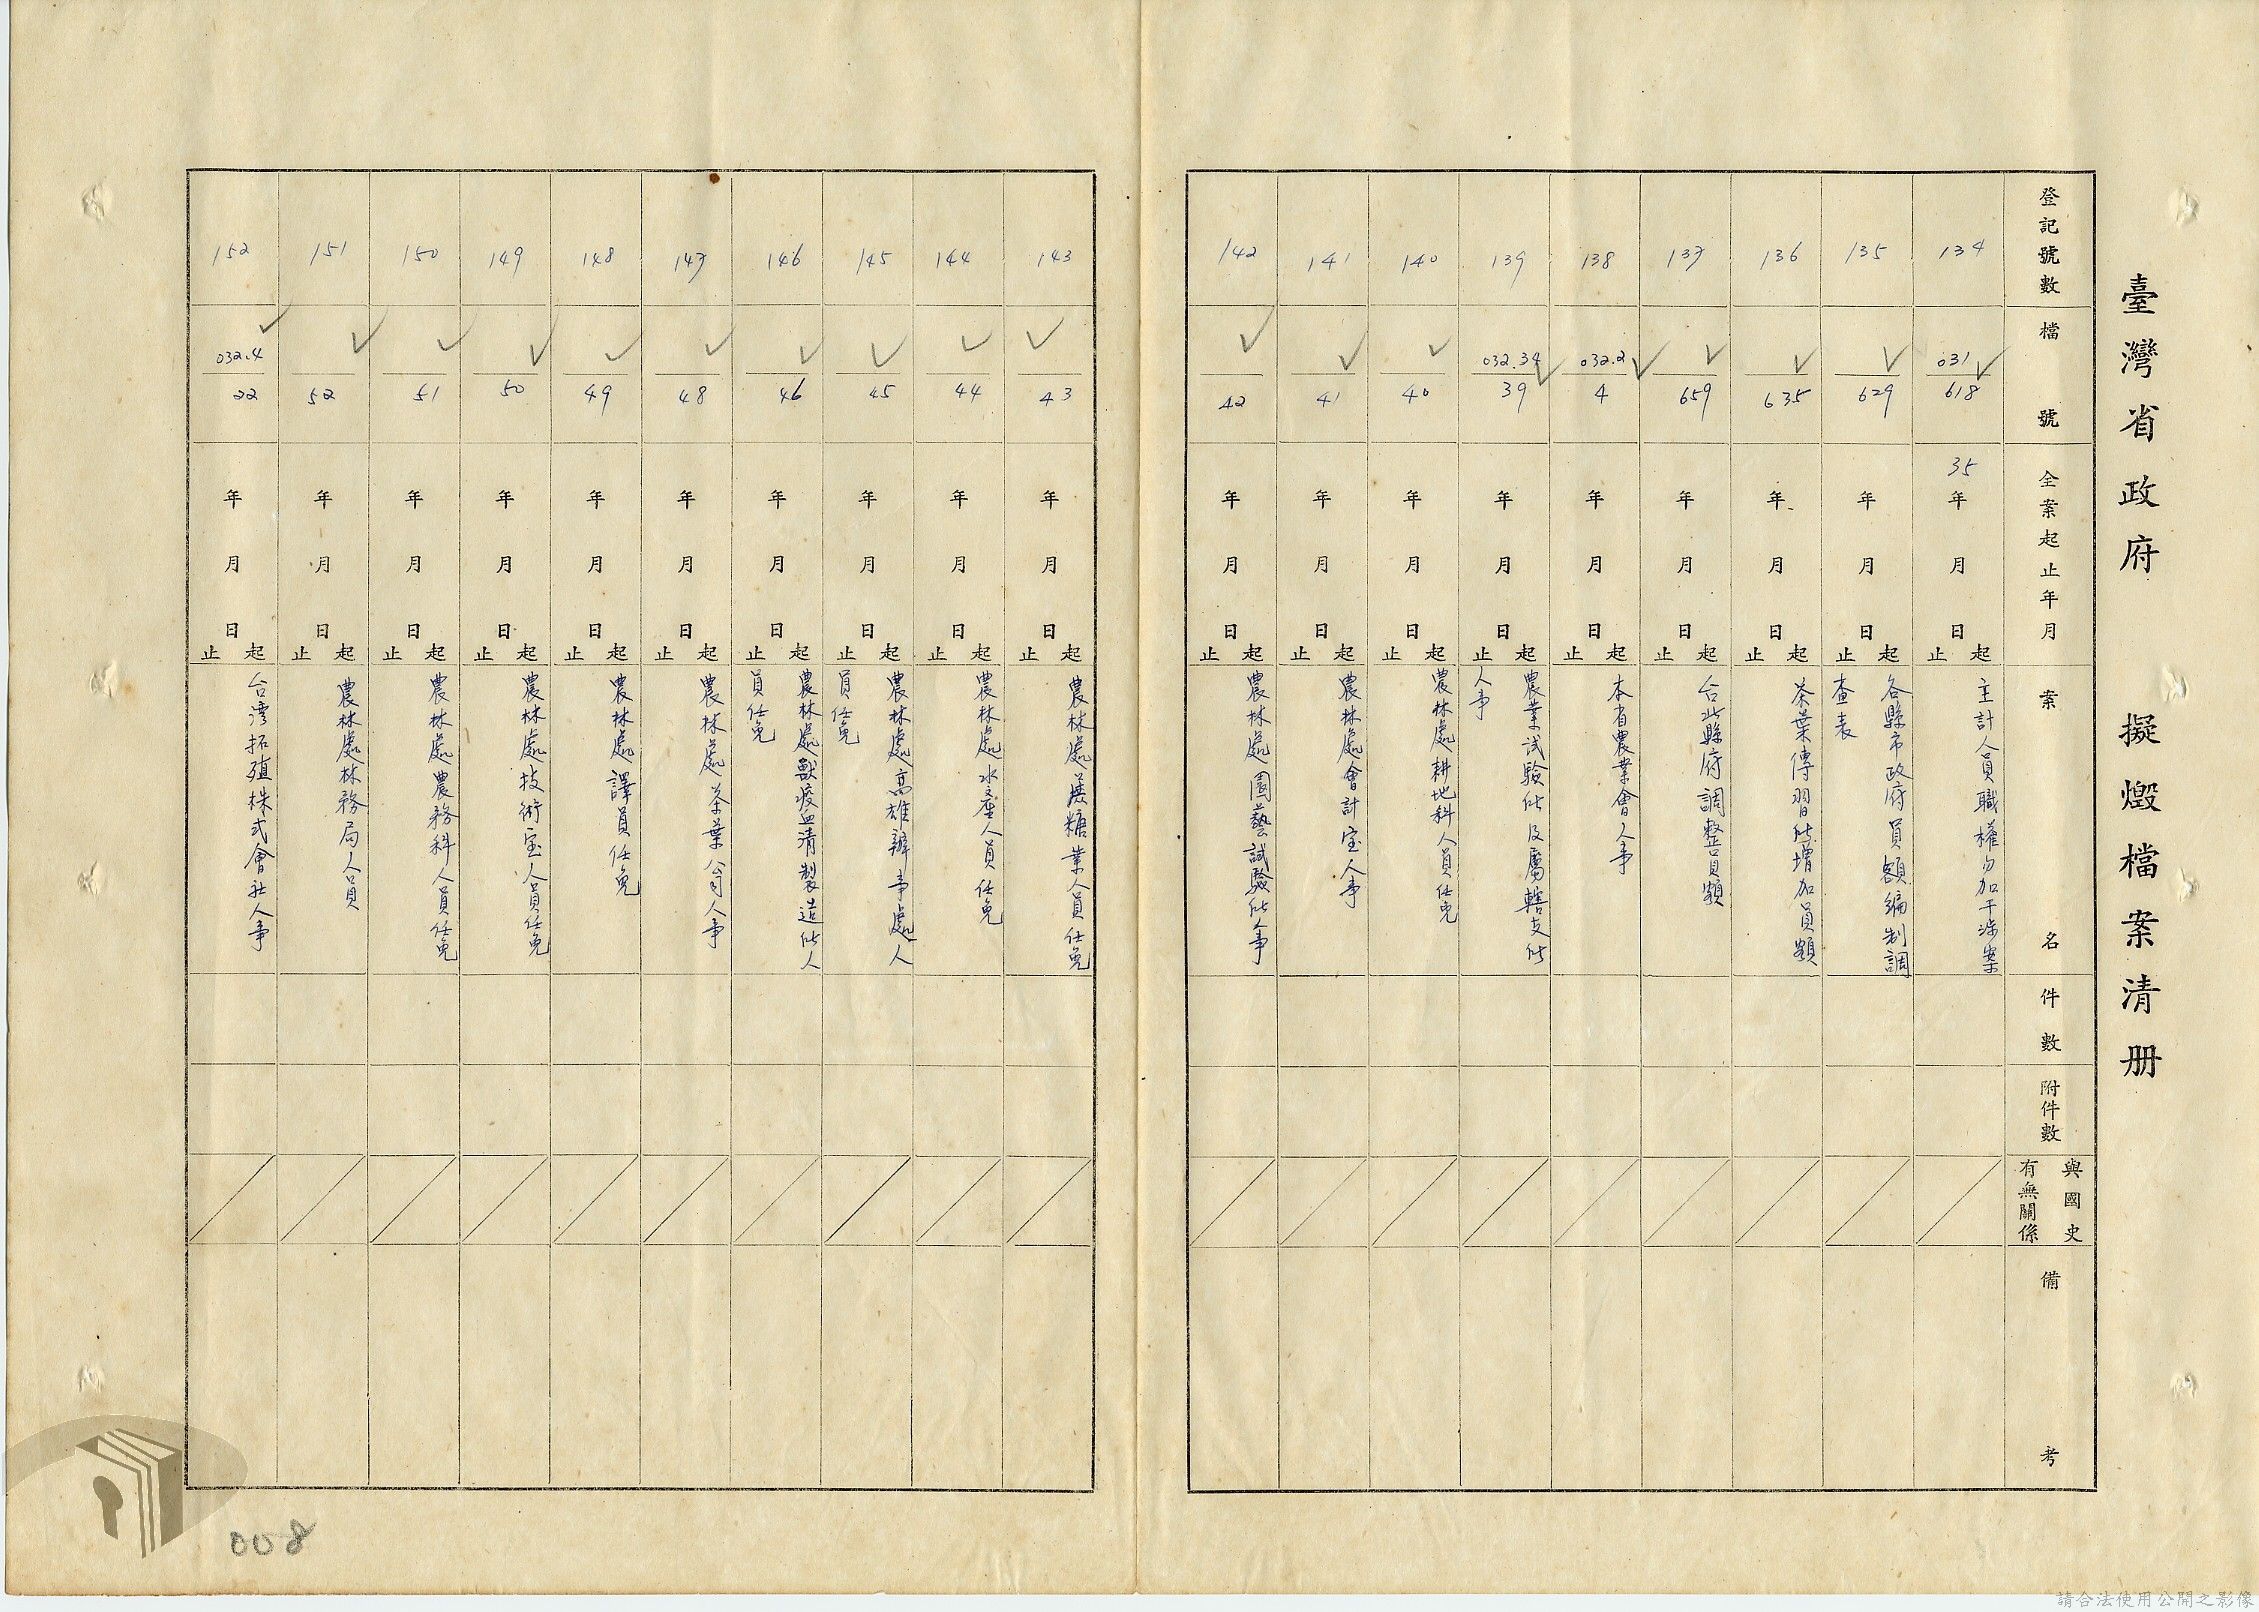 臺灣省政府 擬燬檔案清册
登記號數 檔號 全案起止年月 案名 件數 附件數 與國史有無關係 備考
134 031/618 35年 月 日起止 主計人員職權勿加干涉案
135 629 年 月 日起止 各縣市政府員額編制調查表
136 635 年 月 日起止 茶葉傳習所增加員額
137 659 年 月 日起止 台北縣府調整員額
138 032.2/4 年 月 日起止 本省農業會人事
139 032.34/39 年 月 日起止 農業試驗所及屬轄支所人事
140 40 年 月 日起止 農林處耕地科人員任免
141 41 年 月 日起止 農林處會計室人事
142 42 年 月 日起止 農林處園藝試驗所人事
143 43 年 月 日起止 農林處糖業人員任免
144 44 年 月 日起止 農林處水產人員任免
145 45 年 月 日起止 農林處高雄辦事處人員任免
146 46 年 月 日起止 農林處獸疫血清製造所人員任免
147 48 年 月 日起止 農林處茶葉公司人事
148 49 年 月 日起止 農林處譯員任免
149 50 年 月 日起止 農林處技術室人員任免
150 51 年 月 日起止 農林處農務科人員任免
151 52 年 月 日起止 農林處林務局人員
152 032.4/22 年 月 日起止 台灣拓殖株式會社人事
008
請合法使用公開之影像